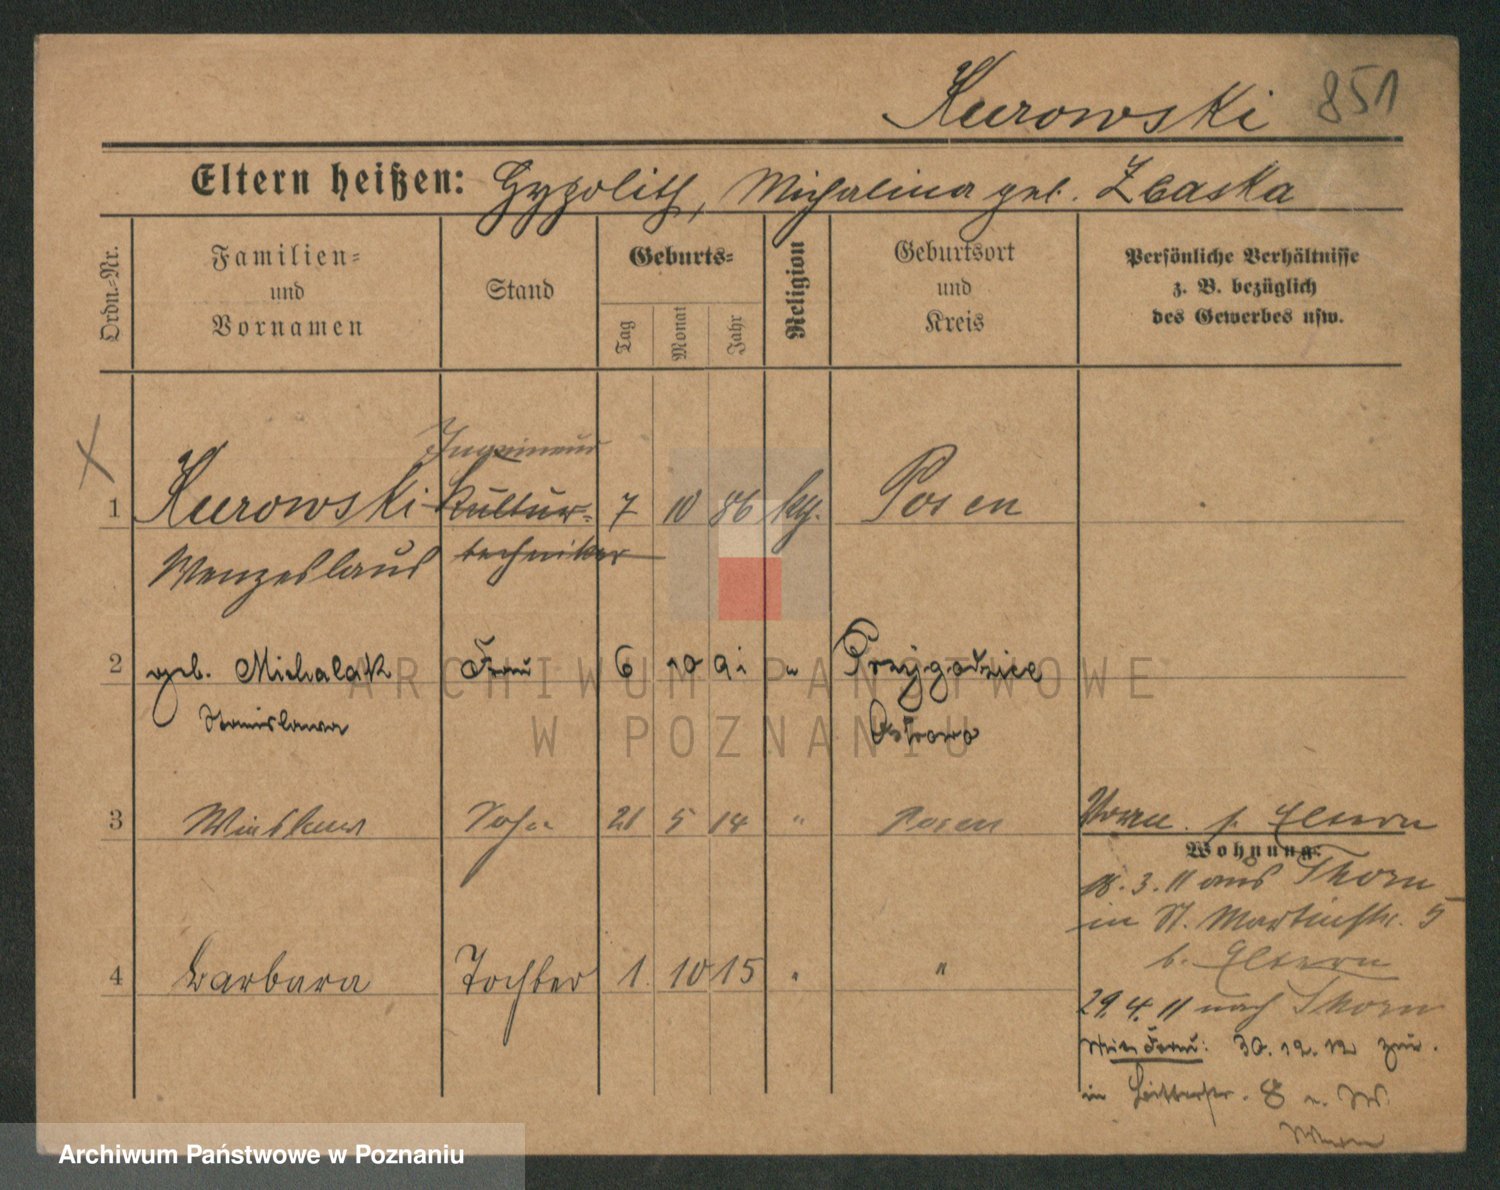 Kurowski 851
Eltern heißen: Hypolith, Michalina geb. Zbaska
Ordn.-Nr.
Familien-
und
Vornamen
Stand
Geburts-
Tag
Monat
Jahr
Religion
Geburtsort
und
Kreis
Persönliche Verhältnisse
z. B. bezüglich
des Gewerbes usw.
Ingenieur
1 Kurowski Kultur- 7 10 86 kth. Posen
Wenzeslaus techniker
2 geb. Michalak Frau 6 10 91 " Przygodzice
Stanislawa Ostrowo
3 Wieslaw Sohn 21 5 14 " Posen
Eltern
Wohnung:
18. 3. 11 aus Thorn
in St. Martinstr. 5
b. Eltern
4 Barbara Tochter 1. 10 15 " "
29. 4. 11 nach Thorn
Mit Frau: 30. 12. 12 zur.
in 8
ARCHIWUM PAŃSTWOWE
W POZNANIU
Archiwum Państwowe w Poznaniu